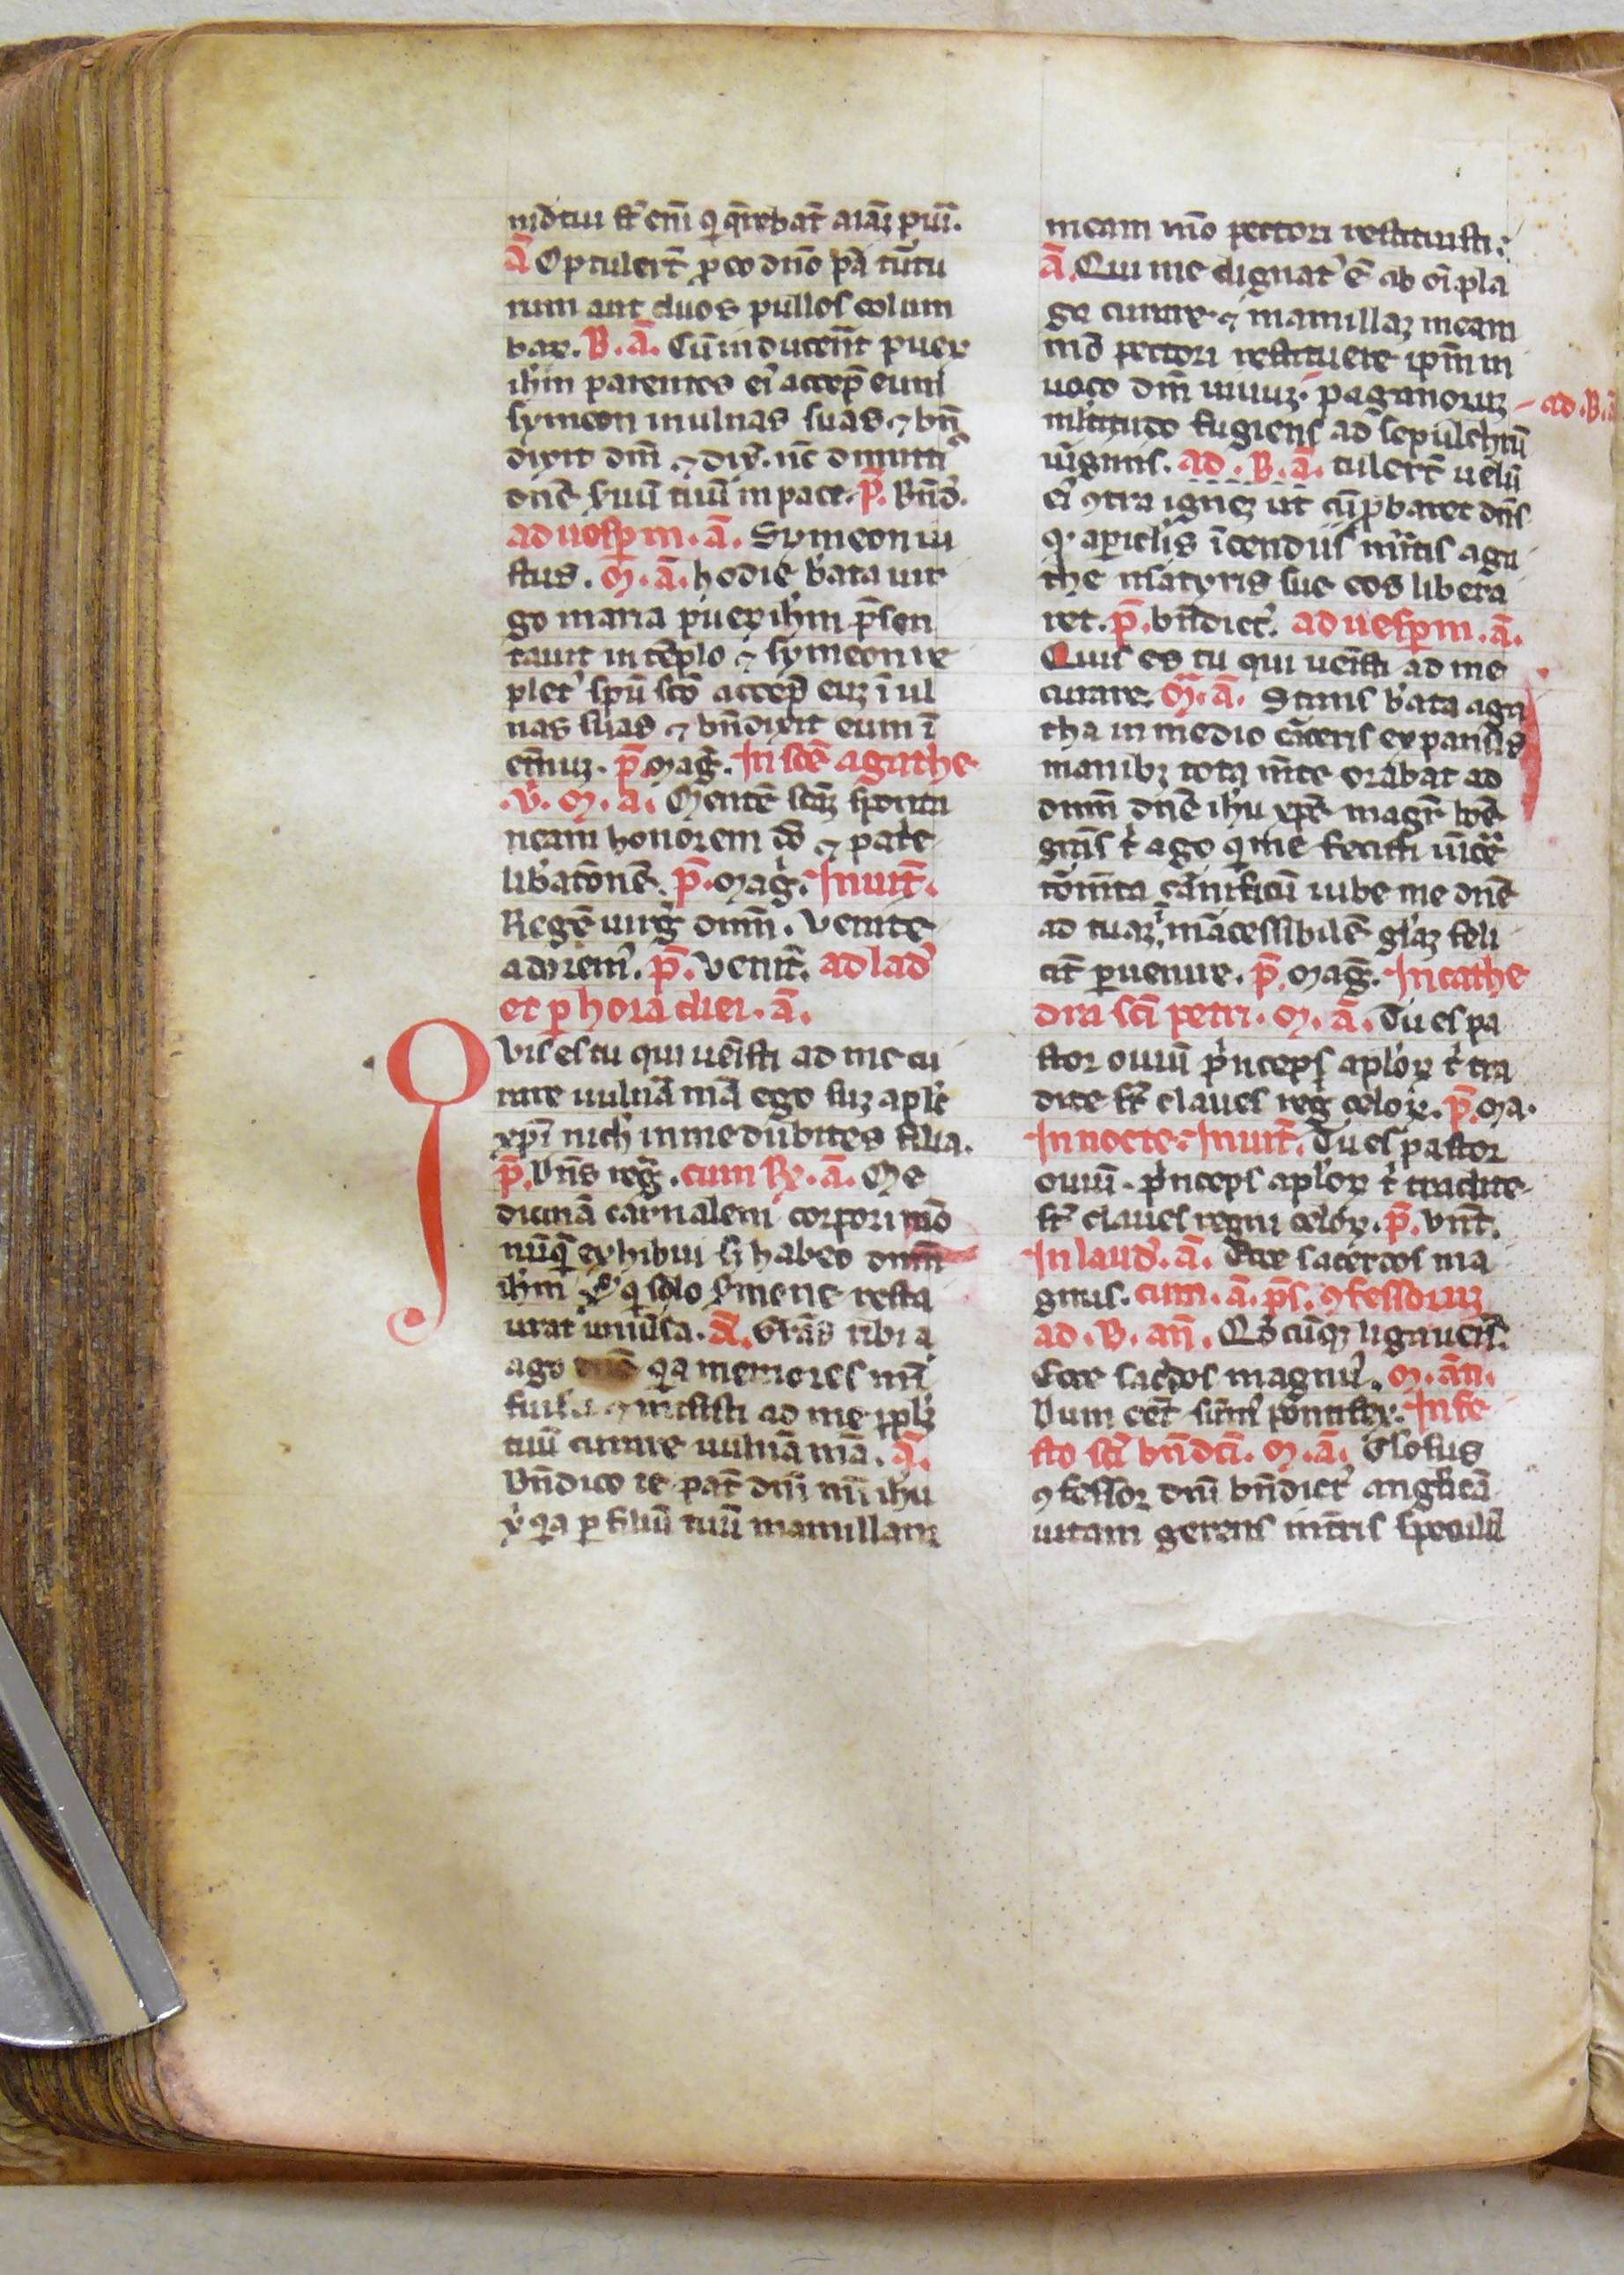 ā Optulert̄ ꝓ eo dn̄o pā turtu
rum aut duos pullos colum
baꝝ. B. ā. Cū inducerent puer
ih̄m parentes ei' accep̄ eum
symeon in ulnas suas ⁊ bn̄
dixit dm̄ ⁊ dix̄. nc̄ dimitti'
dn̄e ẜuū tuū in pace. p̄. Bn̄d'.
ad uesꝑm. ā. Symeon iu
stus. M. ā. hodie b'ata uir
go maria puer ih̄m p̄sen
tauit in tēplo ⁊ symeon re
plet' spū sc̄o accep̄ euꝫ ī ul
nas suas ⁊ bn̄dixit eum ī
et̄nuꝫ. p̄. maḡ. In sc̄e agathe
.v'. M. ā. Mentē sc̄aꝫ sponta
neam honorem dō ⁊ patrie
lib'atōnē. p̄. maḡ. Inuit̄.
Regē uirḡ dnm̄. Venite
adorem'. p̄. Venit̄. ad lad'
et ꝑ hora diei. ā.
Quis es tu qui uēisti ad me cu
rare uulnā mā ego suꝫ apl'c
xp̄i nich' in me dubites filia.
p̄. Dn̄s reḡ. cum Rx. ā. Me
dicinā carnalem corpori mō
nūq̄ exhibui sꝫ habeo dnm̄
ih̄m x' qͥ solo ẜmone resta
urat uniūsa. ā. Grās tibi a
ago qa memores mī
tuū curare uulnā mā. ā.
Bn̄dico te pat̄ dn̄i mī ih̄u
x' qa ꝑ filiū tuū mamillam
meam mō pectori restituisti.
ā. Qui me dignat' ē ab oī pla
ga curare ⁊ mamillaꝫ meam
mō pectori restituere ip̄m in
uoco dm̄ uiuuꝫ. paganoruꝫ – ad. B. ā
ml̄titudo fugiens ad sepulchrū
uirginis. ad. B. ā. tulert̄ uelū
ei' ꝯtra igneꝫ ut cū ꝓbaret dn̄s
the martyris sue eos libera
ret. p̄. bn̄dict'. ad uesꝑm. ā.
Quis es tu qui uēisti ad me
curare. M. ā. Stans b'ata aga
tha in medio carceris expansis
manibꝫ tota mēte orabat ad
dnm̄ dn̄e ih̄u xp̄e magr̄ bōe
grās t' ago q' me fecisti uincere
tormēta carnificū iube me dn̄e
ad tuaꝫ inmarcessibilē gl'aꝫ feli
cit' ꝑuenire. p̄. maḡ. In cathe
dra sc̄i petri. M. ā. Tu es pa
stor ouiū p'nceps apl'oꝝ t' tra
dite st̄ claues reg̅ celoꝝ. p̄. ma.
In nocte. Inuit̄. Tu es pastor
ouiū. p'nceps apl'oꝝ t' tradite
st̄ claues regni celoꝝ. p̄. Vnt̄.
In laud'. ā. Ecce sacerdos ma
gnus. cum. ā. p̄s. ꝯfessoruꝫ
ad. B. an̄. Qd'cūqꝫ ligauer̄.
Ecce sac'dos magnu'. M. ān.
Dum eēt sūm' pontifex. In fe
sto sc̄i bn̄dc̄i. M. ā. Glosus
ꝯfessor dn̄i bn̄dict' anglicā
uitam gerens